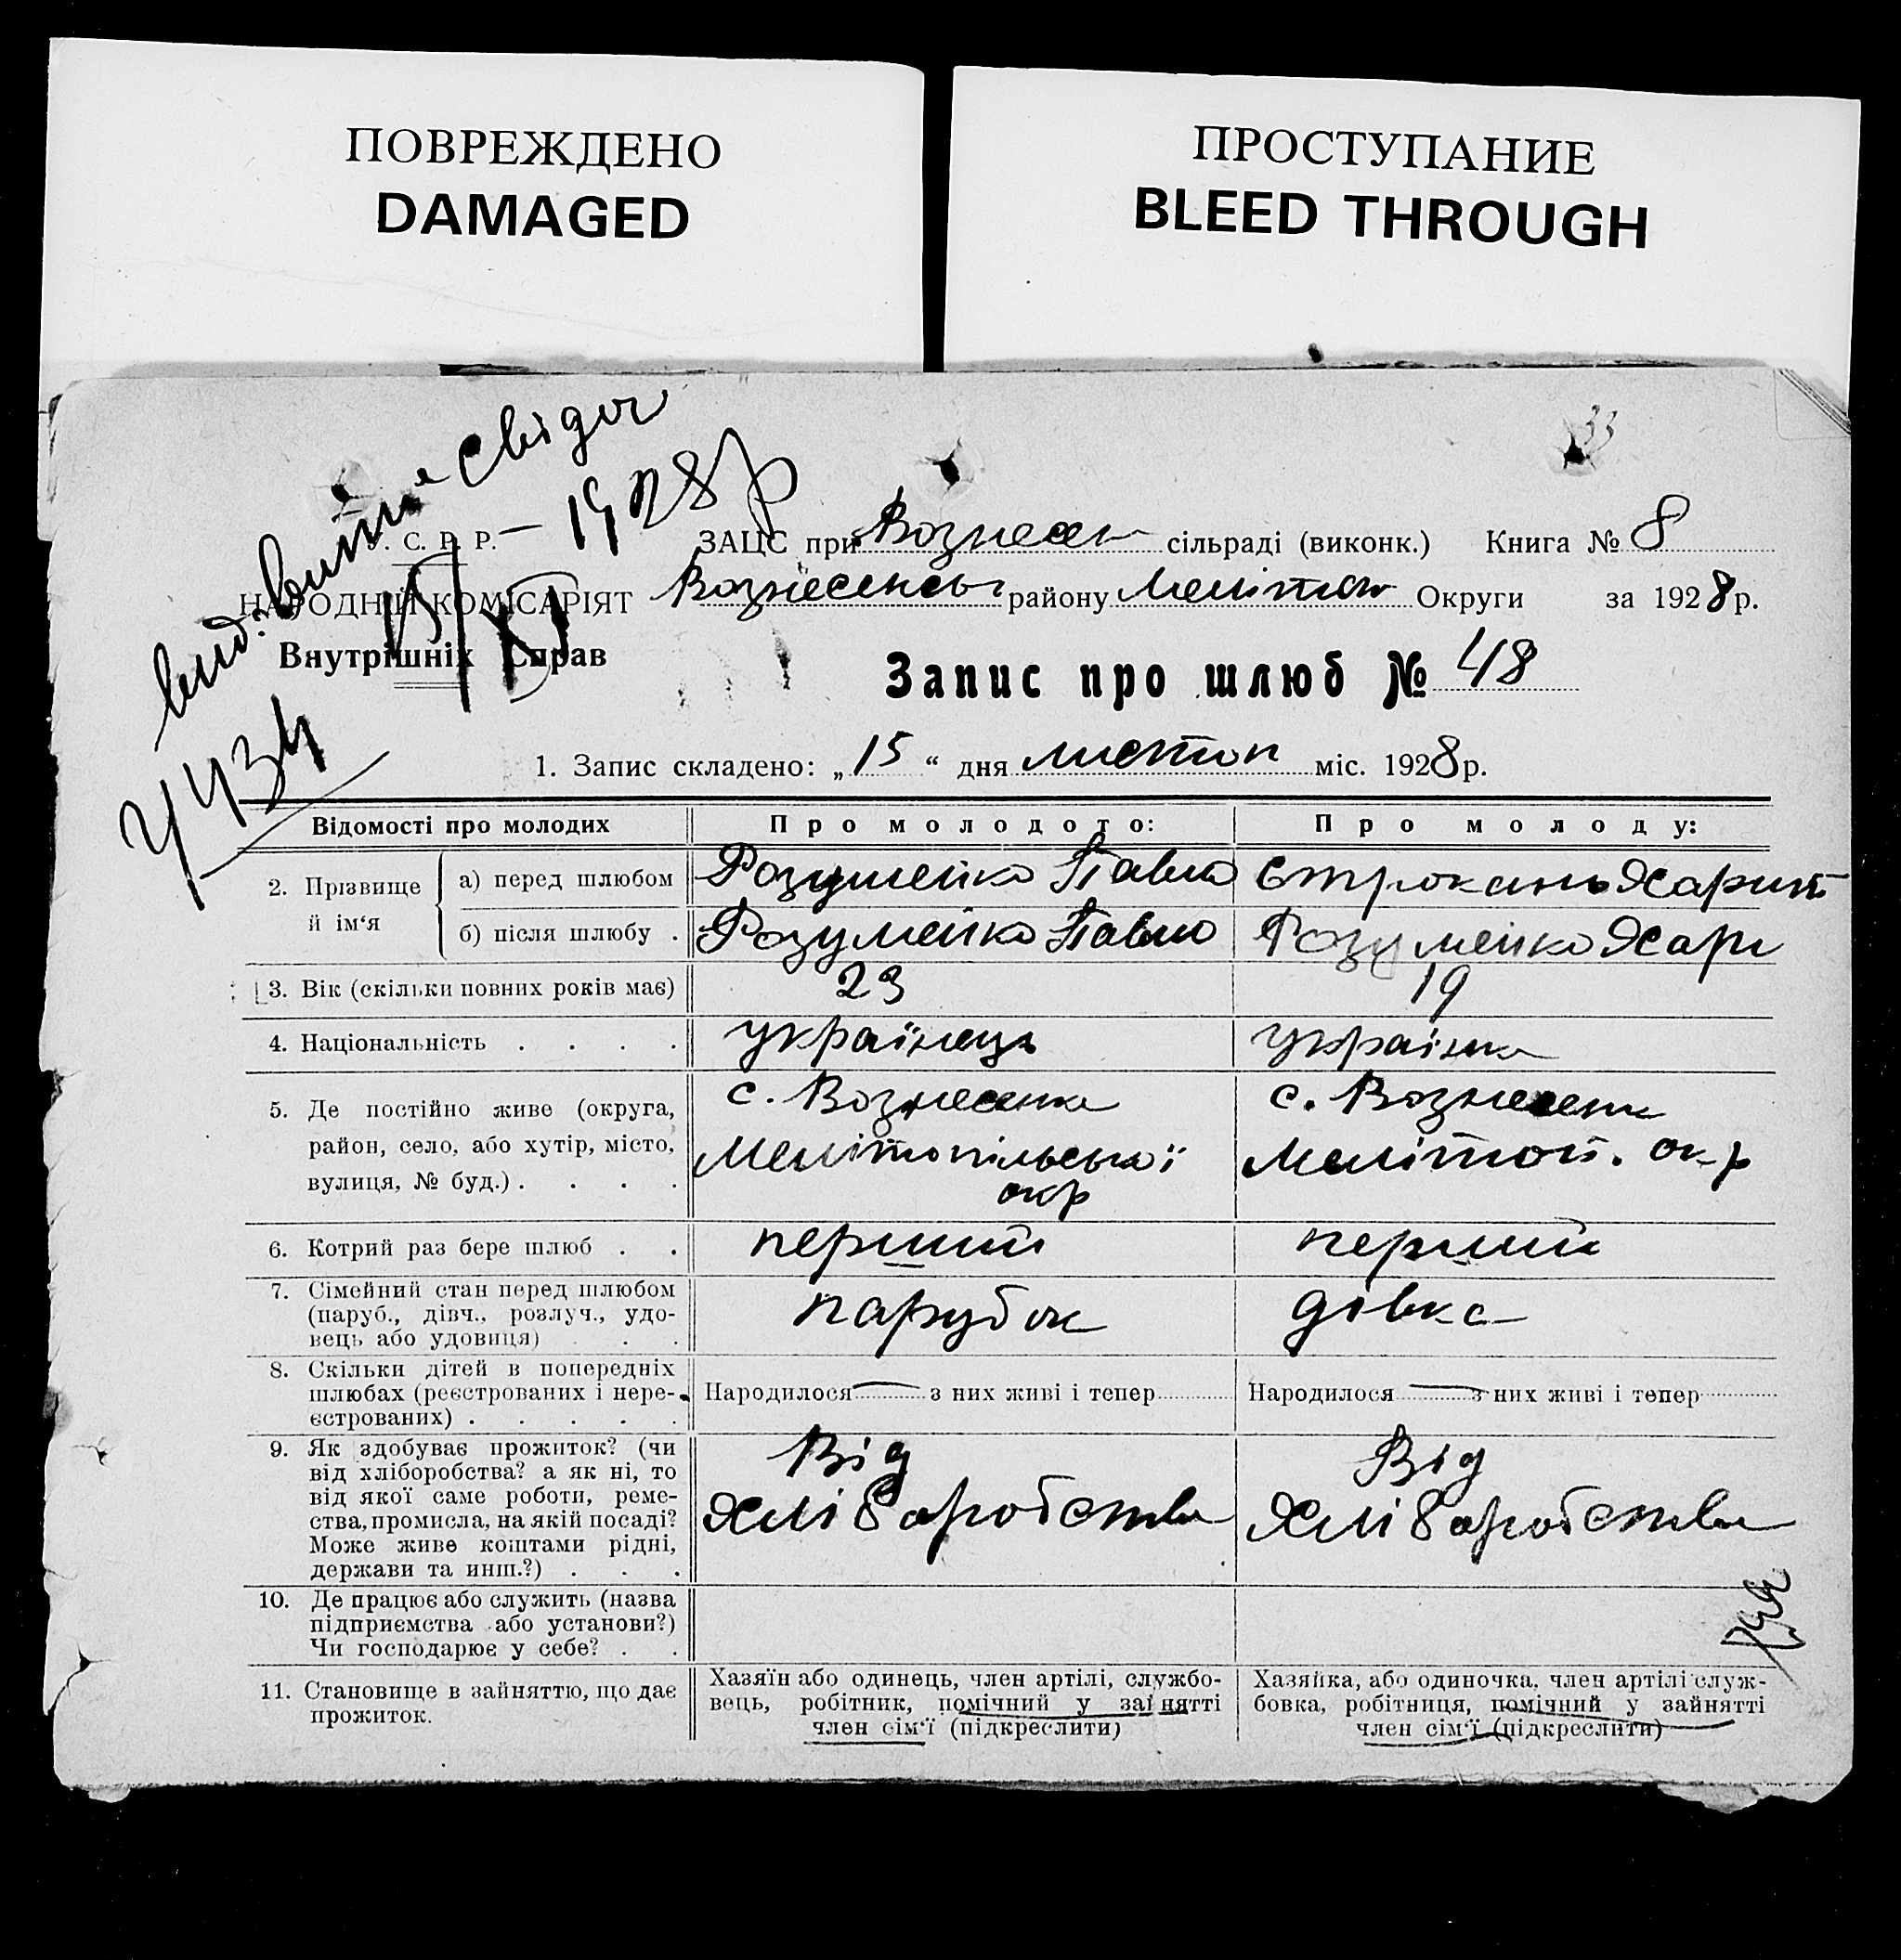 ПОВРЕЖДЕНО
DAMAGED
ПРОСТУПАНИЕ
BLEED THROUGH
33
вид. витяг свідоч
15/XI – 1928 р
У. С. Р. Р.
НАРОДНІЙ КОМІСАРІЯТ
Внутрішніх Справ
ЗАЦС при Вознесен сільраді (виконк.) Книга № 8
Вознесенськ району Мелітоп Округи за 1928 р.
Запис про шлюб № 48
1. Запис складено: „15“ дня листоп міс. 1928 р.
Відомості про молодих
Про молодого:
Про молоду:
2. Прізвище й ім'я
а) перед шлюбом
Розумейко Павло
Строкань Харит
б) після шлюбу .
Розумейко Павло
Розумейко Хари
3. Вік (скільки повних років має)
23
19
4. Національність . . . .
українець
українка
5. Де постійно живе (округа,
район, село, або хутір, місто,
вулиця, № буд.) . . . .
с. Вознесенка
Мелітопільської
окр
с. Вознесенк
Мелітоп. окр
6. Котрий раз бере шлюб . .
перший
перший
7. Сімейний стан перед шлюбом
(паруб., дівч., розлуч., удо-
вець або удовиця) . . .
парубок
дівка
8. Скільки дітей в попередніх
шлюбах (реєстрованих і нере-
єстрованих) . . . . .
Народилося — з них живі і тепер
Народилося — з них живі і тепер
9. Як здобуває прожиток? (чи
від хліборобства? а як ні, то
від якої саме роботи, реме-
ства, промисла, на якій посаді?
Може живе коштами рідні,
держави та инш.?) . . .
Від
Хліборобства
Від
Хліборобства
10. Де працює або служить (назва
підприємства або установи?)
Чи господарює у себе? . .
11. Становище в зайняттю, що дає
прожиток.
Хазяїн або одинець, член артілі, службо-
вець, робітник, помічний у зайнятті
член сім'ї (підкреслити)
Хазяйка, або одиночка, член артілі служ-
бовка, робітниця, помічний у зайнятті
член сім'ї (підкреслити)